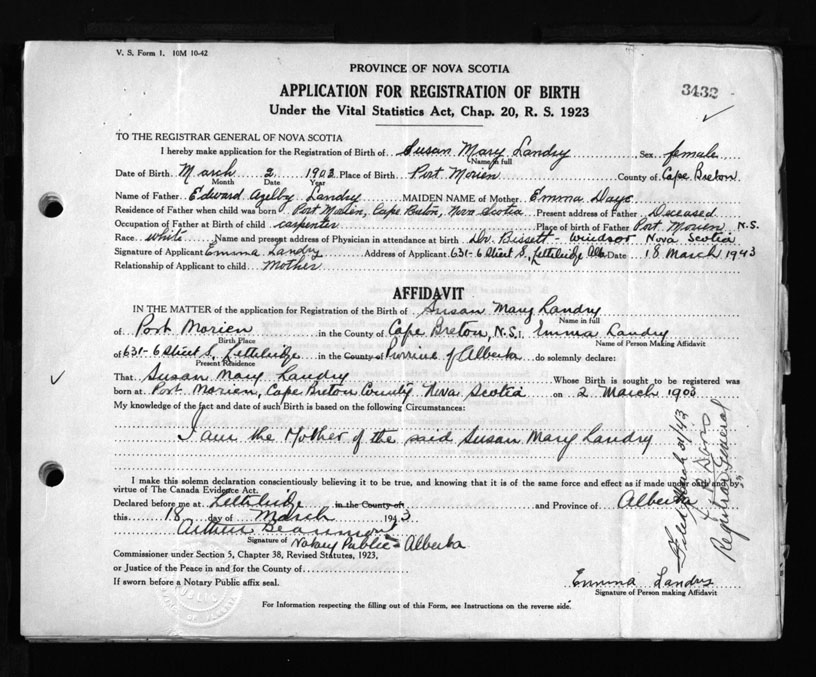 V. S. Form 1. 10M 10-42
PROVINCE OF NOVA SCOTIA
3432
APPLICATION FOR REGISTRATION OF BIRTH
Under the Vital Statistics Act, Chap. 20, R. S. 1923
TO THE REGISTRAR GENERAL OF NOVA SCOTIA
I hereby make application for the Registration of Birth of Susan Mary Landry Sex female
Name in full
Date of Birth March 2 1903 Place of Birth Port Morien County of Cape Breton
Month Date Year
Name of Father Edward Landry MAIDEN NAME of Mother Emma Daye
Residence of Father when child was born Port Morien, Cape Breton, Nova Scotia Present address of Father Deceased
Occupation of Father at Birth of child carpenter Place of birth of Father Port Morien N.S.
Race white Name and present address of Physician in attendance at birth Dr. Bissett - Windsor Nova Scotia
Signature of Applicant Emma Landry Address of Applicant 631-6 Street S, Lethbridge Alta Date 18 March 1943
Relationship of Applicant to child Mother
AFFIDAVIT
IN THE MATTER of the application for Registration of the Birth of Susan Mary Landry
Name in full
of Port Morien in the County of Cape Breton, N.S. I, Emma Landry
Birth Place Name of Person Making Affidavit
of 631-6 Street S, Lethbridge in the County of Province of Alberta do solemnly declare:
Present Residence
That Susan Mary Landry Whose Birth is sought to be registered was
born at Port Morien, Cape Breton County Nova Scotia on 2 March 1903
My knowledge of the fact and date of such Birth is based on the following Circumstances:
I am the Mother of the said Susan Mary Landry
I make this solemn declaration conscientiously believing it to be true, and knowing that it is of the same force and effect as if made under oath and by
virtue of The Canada Evidence Act.
Declared before me at Lethbridge in the County of and Province of Alberta
this 18 day of March 1943
Arthur Beaumont
Signature of Notary Public - Alberta
Commissioner under Section 5, Chapter 38, Revised Statutes, 1923,
or Justice of the Peace in and for the County of
If sworn before a Notary Public affix seal.
Emma Landry
Signature of Person making Affidavit
For Information respecting the filling out of this Form, see Instructions on the reverse side.
March 31/43
Davis
Registrar General